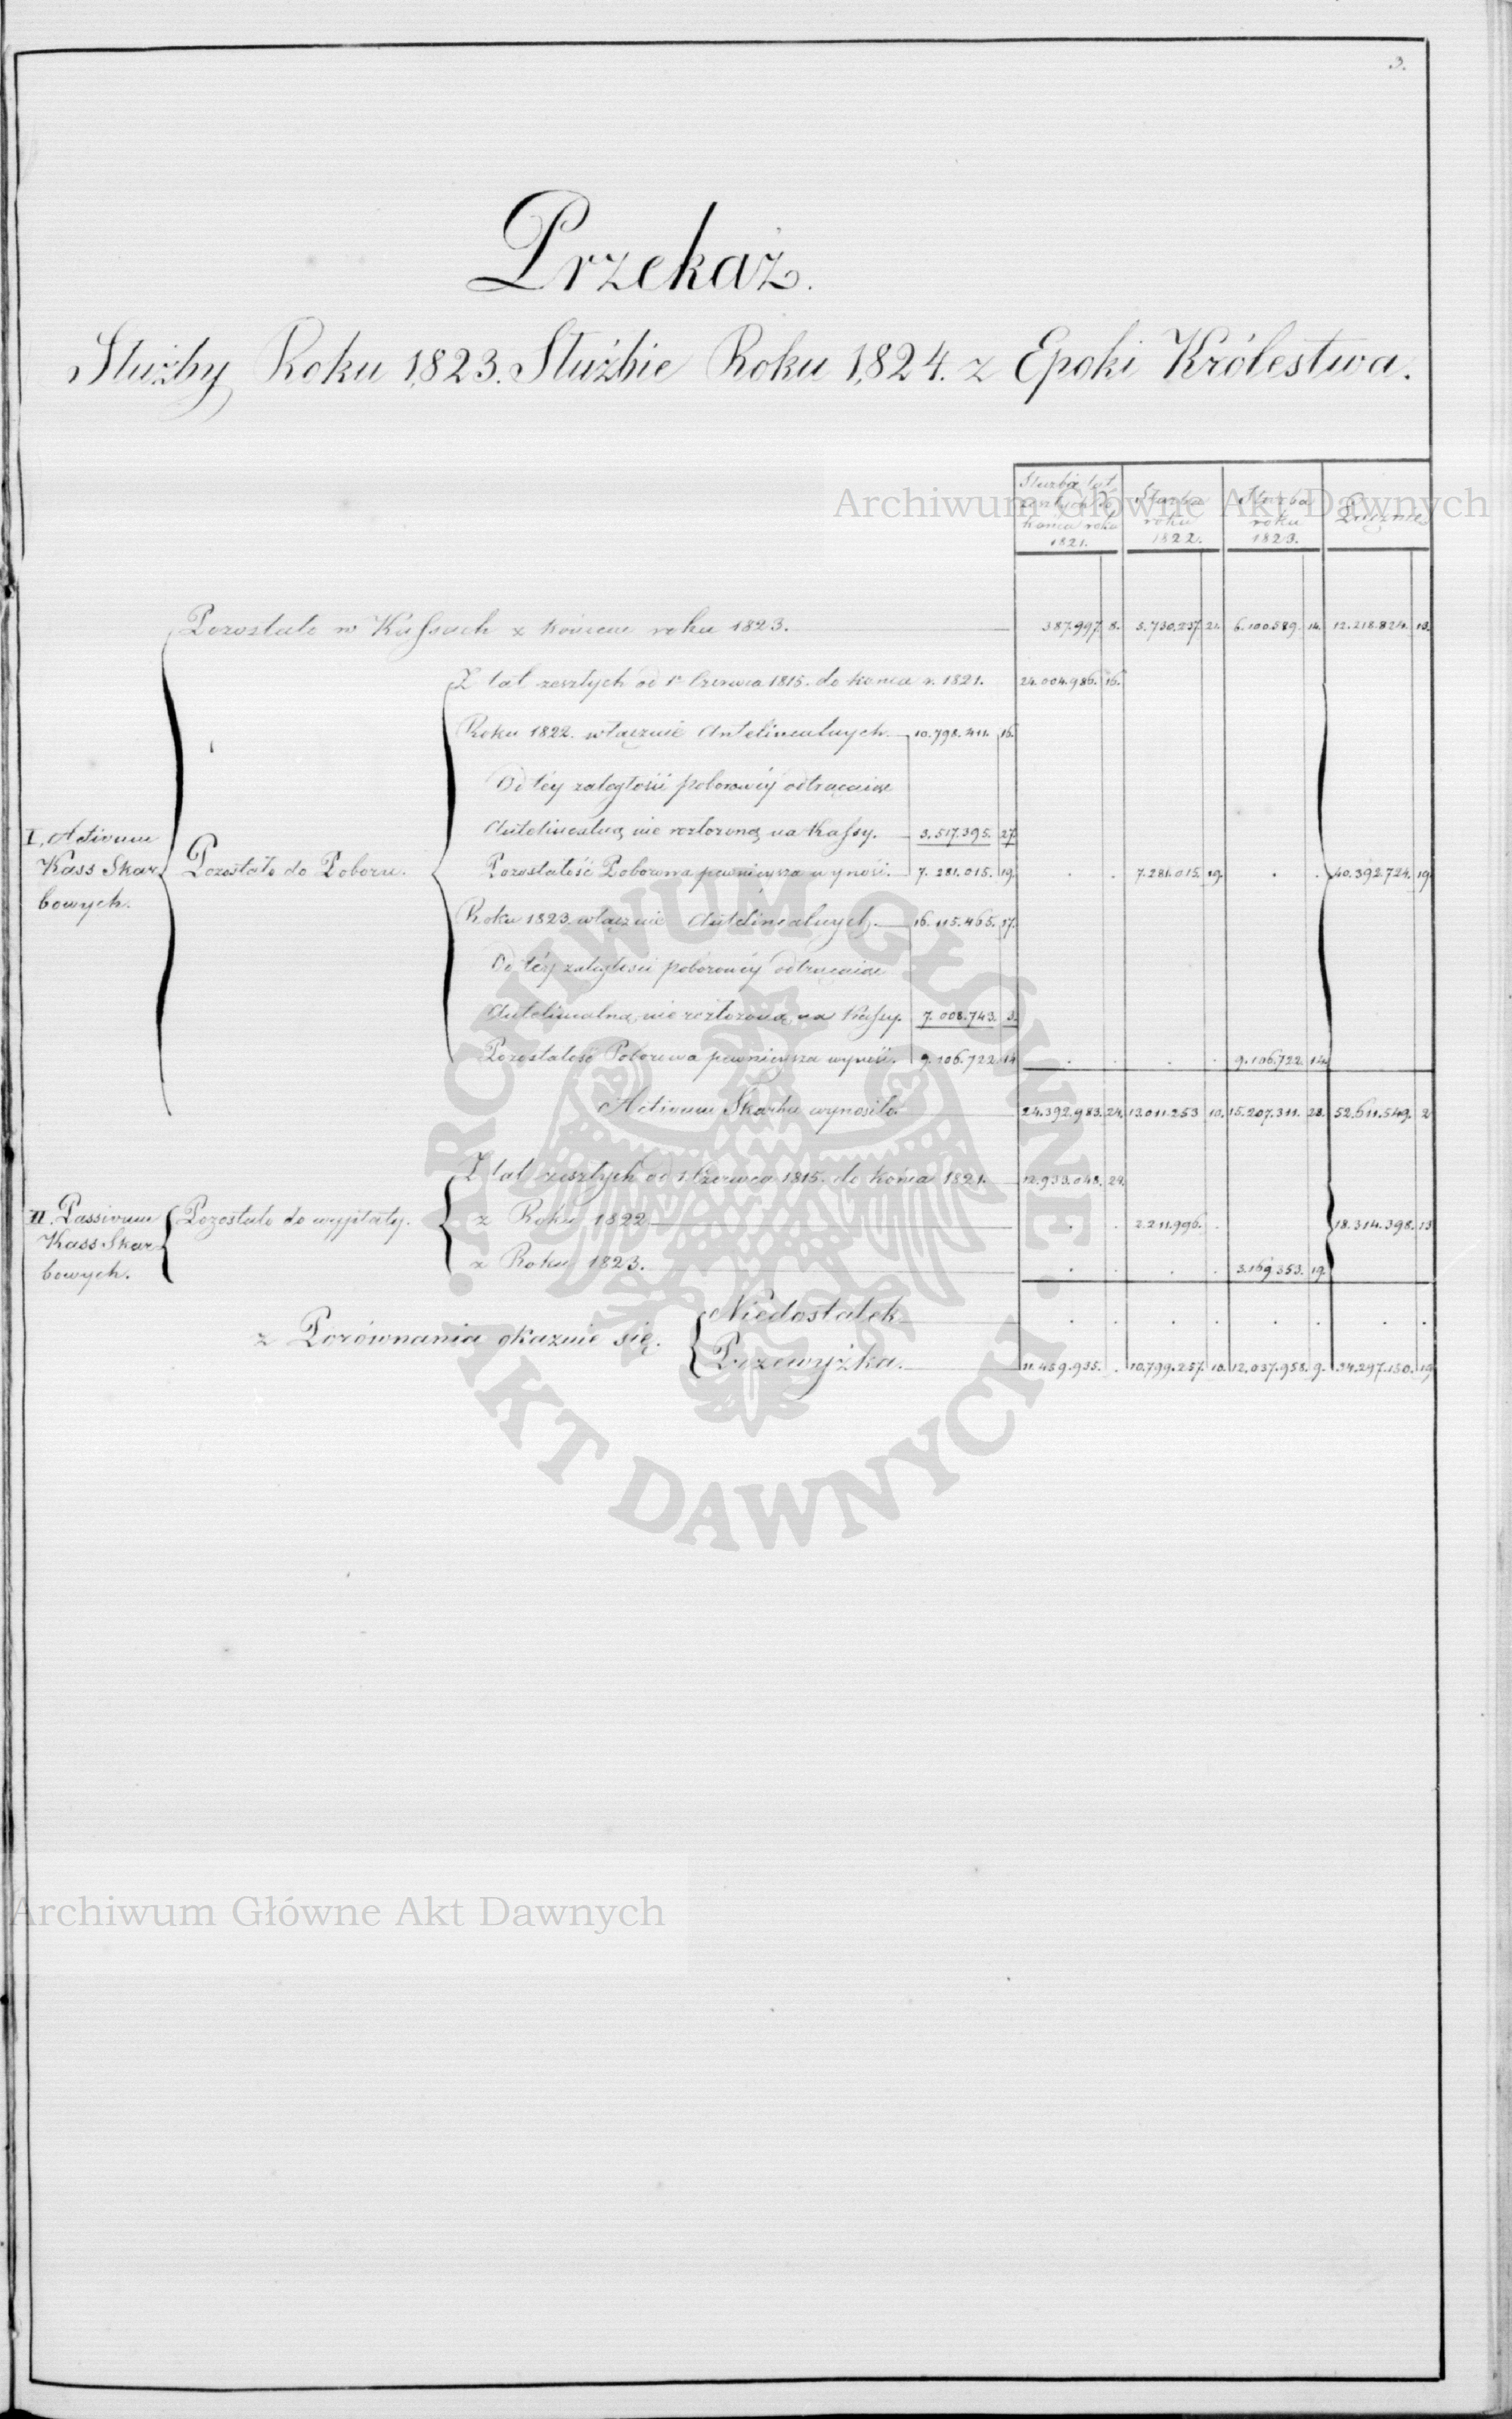 3.
Przekaz.
Służby Roku 1,823. Służbie Roku 1,824. z Epoki Królestwa.
Archiwum Główne Akt Dawnych
Służba lat
końca roku
1821.
Służba
roku
1822.
Służba
roku
1823.
Łącznie
Pozostało w Kassach z końcem roku 1823. 387.997. 8. 5.730.237. 21. 6.100.589. 14. 12.218.824. 13.
Z lat zeszłych od 1o Czerwca 1815. do końca r. 1821. 24.004.986. 16.
Roku 1822. włącznie Antelinealnych. 10.798.411. 16.
Od téy zaległości poborowéy odtrącaiąc
Antelinealną nie rozłożoną na Kassy. 3.517.395. 27.
I. Activum
Kass Skar
bowych.
Pozostało do Poboru.
Pozostałość Poborowa pewnieysza wynosi. 7.281.015. 19. . . 7.281.015. 19. . . 40.392.724. 19.
Roku 1823. włącznie Antelinealnych. 16.115.465. 17.
Od téy zaległości poborowéy odtrącaiąc
Antelinealną nie rozłożoną na Kassy. 7.008.743. 3.
Pozostałość Poborowa pewnieysza wynosi. 9.106.722. 14. . . . . 9.106.722. 14.
Activum Skarbu wynosiło. 24.392.983. 24. 13.011.253. 10. 15.207.311. 28. 52.611.549. 2.
Z lat zeszłych od 1 Czerwca 1815. do końca 1821. 12.933.048. 24.
II. Passivum
Kass Skar
bowych.
Pozostało do wypłaty.
z Roku 1822. . . 2.211.996. . 18.314.398. 13.
z Roku 1823. . . . . 3.169.353. 19.
z Porównania okazuie się.
Niedostatek . . . . . . . .
Przewyżka. 11.459.935. . 10.799.257. 10. 12.037.958. 9. 34.297.150. 19.
ARCHIWUM GŁÓWNE · AKT DAWNYCH ·
Archiwum Główne Akt Dawnych